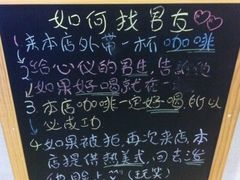 如何找男友
1来本店外带一杯咖啡
2给心仪的男生,告诉他
如果好喝就在一
3本店咖啡一定好喝,所以
必成功
4如果被拒,再次来店,本
店提供热美式,回去渣
他脸上(玩笑)